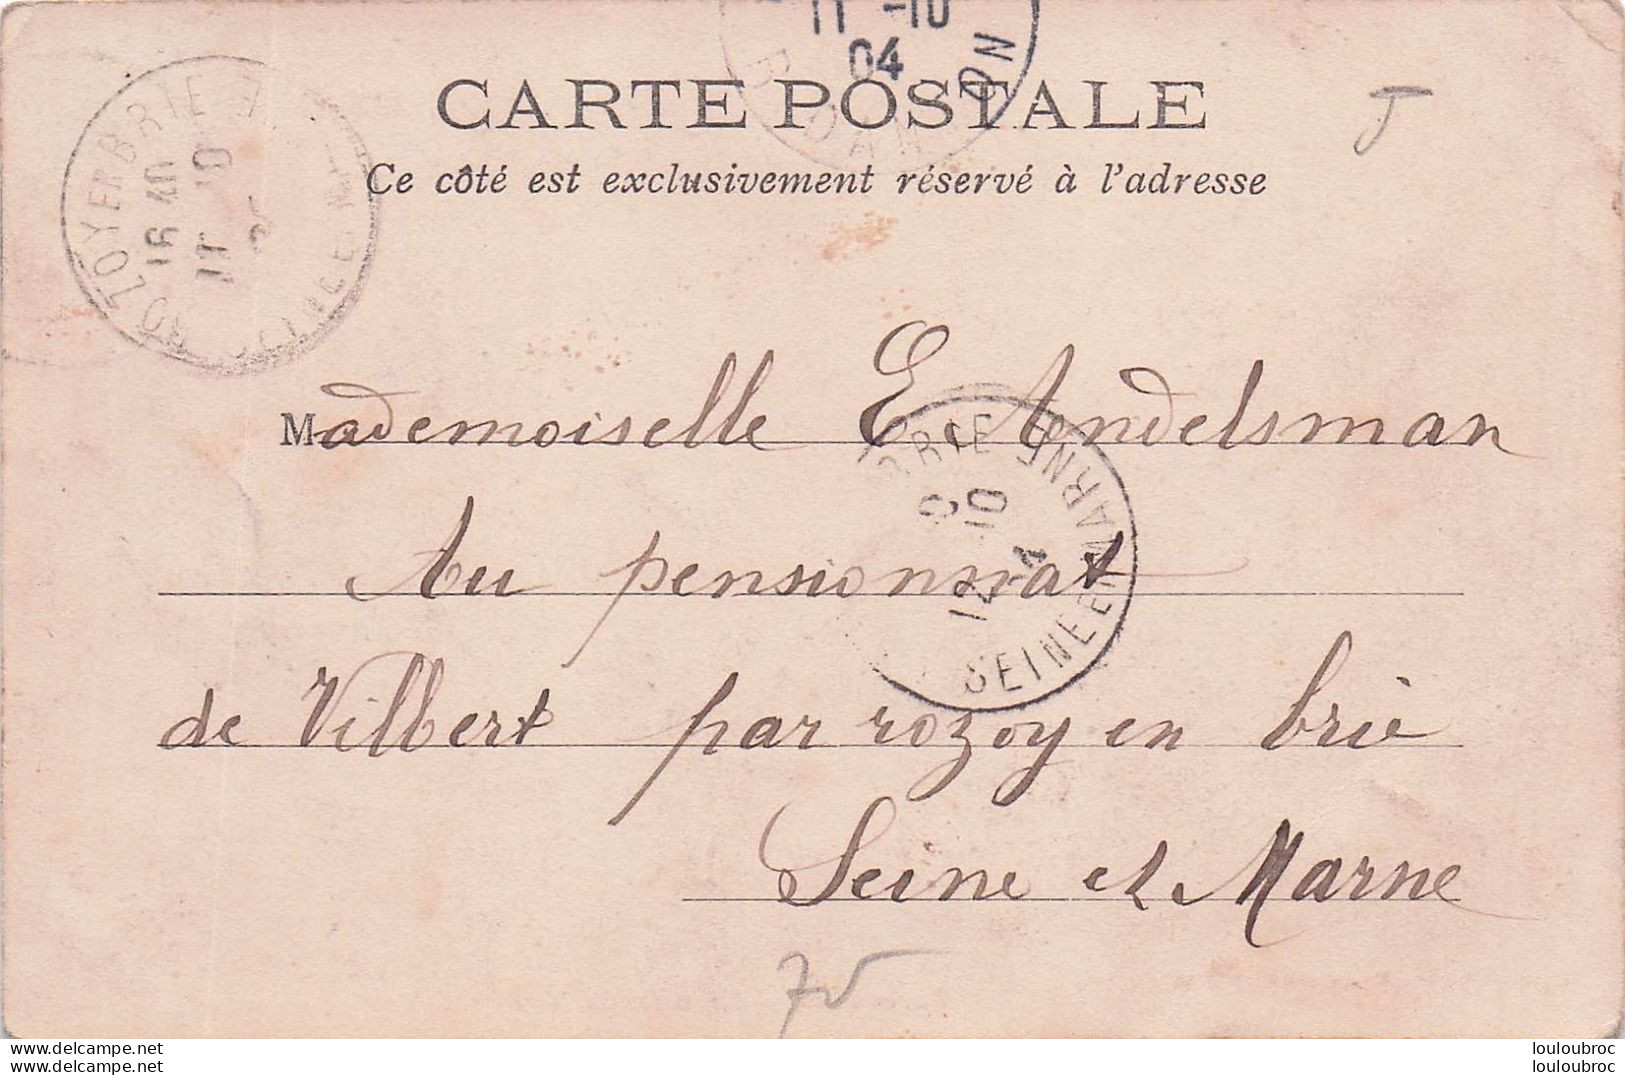 11 -10
04
CARTE POSTALE
Ce côté est exclusivement réservé à l'adresse
ROZOY EN BRIE
16 40
11 -10
Mademoiselle E Andelsman
BRIE
12 -10
SEINE ET MARNE
Au pensionnat
de Vilbert par rozoy en brie
Seine et Marne
J
75
delcampe.net
delcampe.net
louloubroc
louloubroc